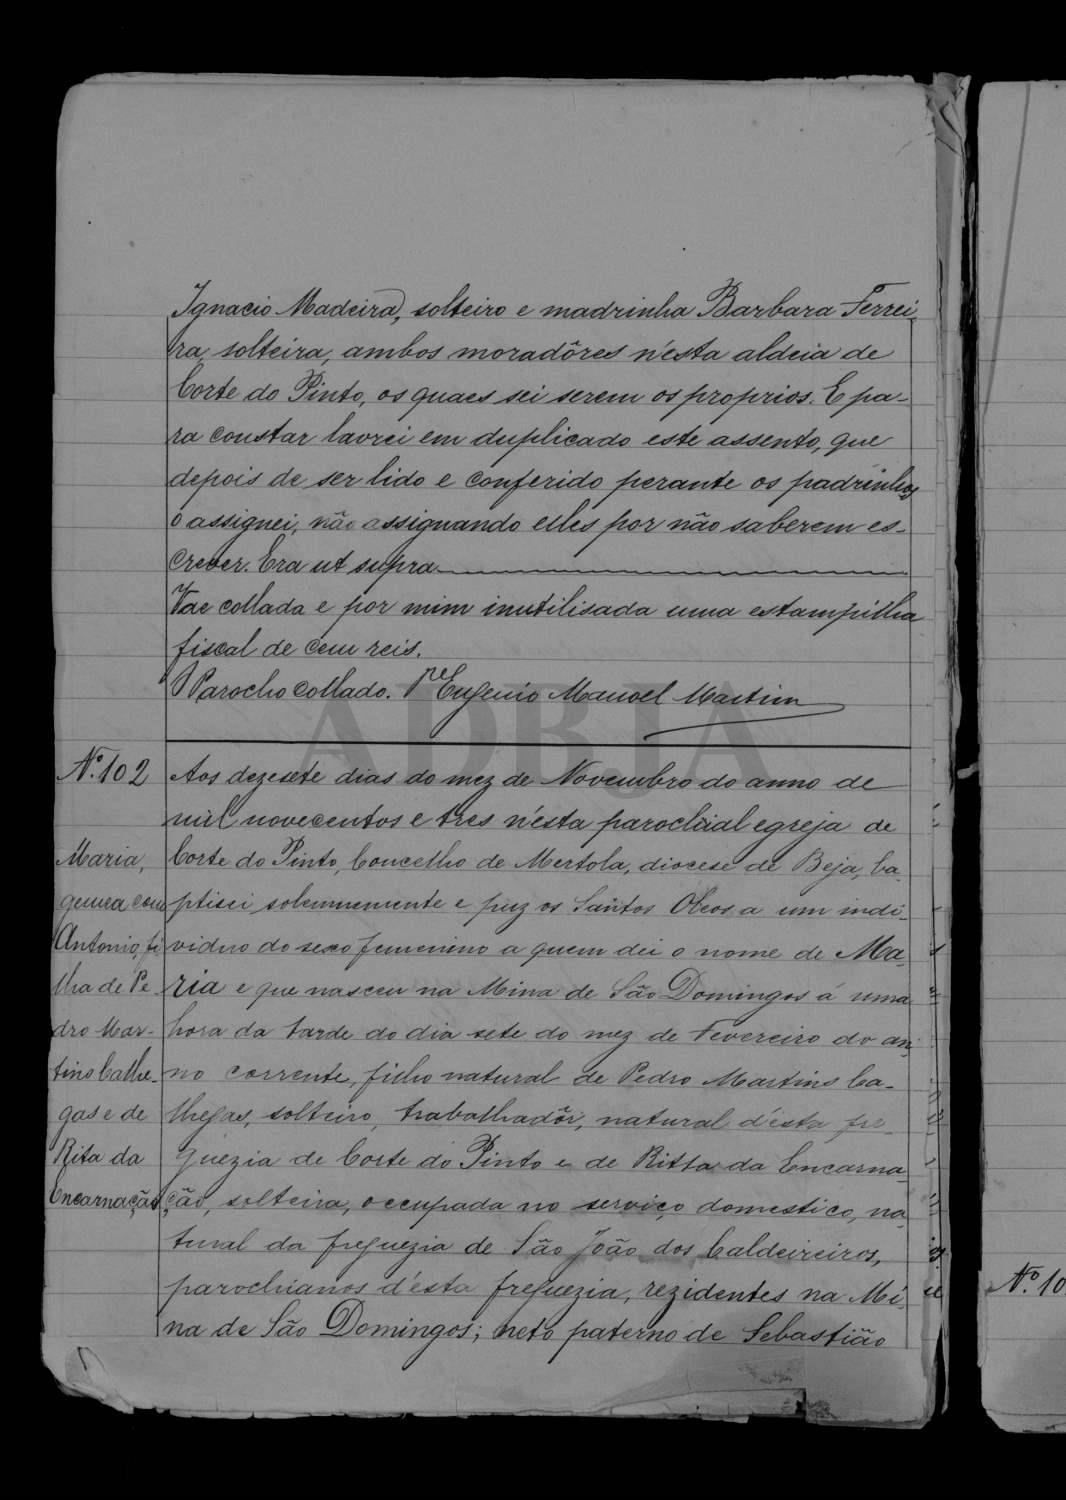 Ignacio Madeira, solteiro e madrinha Barbara Ferrei-
ra, solteira, ambos moradôres n'esta aldeia de
Corte do Pinto, os quaes sei serem os proprios. E pa-
ra constar lavrei em duplicado este assento, que
depois de ser lido e conferido perante os padrinhos
o assignei, não assignando elles por não saberem es-
crever. Era ut supra
Vae collada e por mim inutilisada uma estampilha
fiscal de cem reis.
O Parocho Collado. Pe Eugenio Manoel Martins
ADBJA
Nº 102
Maria,
gemea com
Antonio, fi-
lha de Pe-
dro Mar-
tins Calhe-
gas e de
Rita da
Encarnação
Aos dezesete dias do mez de Novembro do anno de
mil novecentos e tres n'esta parochial egreja de
Corte do Pinto, Concelho de Mertola, diocese de Beja, ba-
ptisei solemnemente e puz os Santos Oleos a um indi-
viduo do sexo femenino a quem dei o nome de Ma-
ria e que nasceu na Mina de São Domingos á uma
hora da tarde do dia sete do mez de Fevereiro do an-
no corrente, filho natural de Pedro Martins Ca-
lhegas, solteiro, trabalhadôr, natural d'ésta fre-
guezia de Corte do Pinto e de Ritta da Encarna-
ção, solteira, occupada no serviço domestico, na-
tural da freguezia de São João dos Caldeireiros,
parochianos d'ésta freguezia, rezidentes na Mi-
na de São Domingos; neto paterno de Sebastião
Nº 10